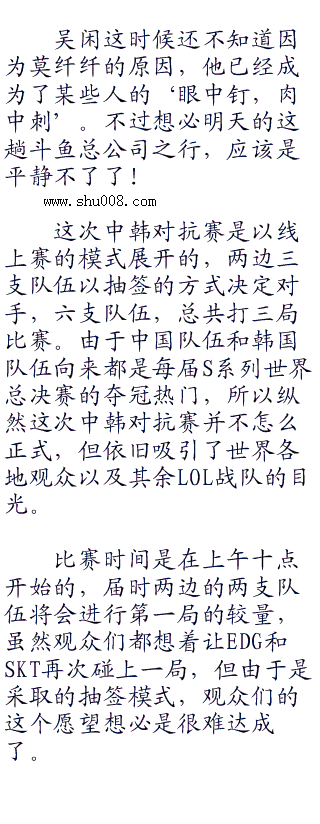 吴闲这时候还不知道因
为莫纤纤的原因，他已经成
为了某些人的‘眼中钉，肉
中刺’。不过想必明天的这
趟斗鱼总公司之行，应该是
平静不了了！
www.shu008.com
这次中韩对抗赛是以线
上赛的模式展开的，两边三
支队伍以抽签的方式决定对
手，六支队伍，总共打三局
比赛。由于中国队伍和韩国
队伍向来都是每届S系列世界
总决赛的夺冠热门，所以纵
然这次中韩对抗赛并不怎么
正式，但依旧吸引了世界各
地观众以及其余LOL战队的目
光。
比赛时间是在上午十点
开始的，届时两边的两支队
伍将会进行第一局的较量，
虽然观众们都想着让EDG和
SKT再次碰上一局，但由于是
采取的抽签模式，观众们的
这个愿望想必是很难达成
了。